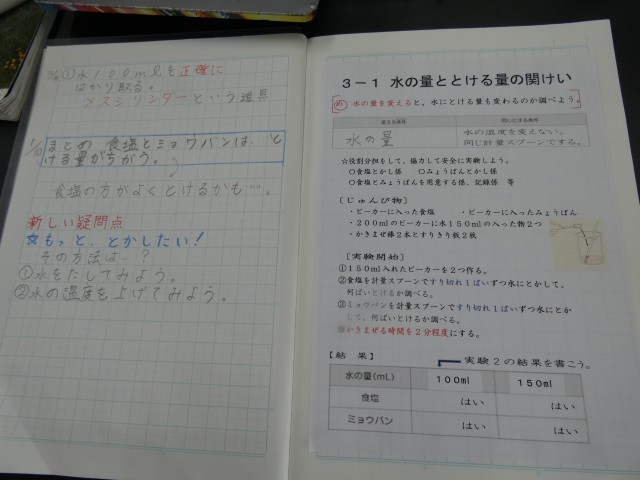 ①水100mlを正確に
はかり取る。
メスシリンダーという道具
まとめ 食塩とミョウバンは、と
ける量がちがう。
食塩の方がよくとけるかも…。
新しい疑問点
☆もっと、とかしたい！
その方法は…？
①水をたしてみよう。
②水の温度を上げてみよう。
3－1 水の量ととける量の関けい
め 水の量を変えると、水にとける量も変わるのか調べよう。
変える条件 同じにする条件
水の量 水の温度を変えない。
同じ計量スプーンでする。
☆役割分担をして、協力して安全に実験しよう。
○食塩とかし係 ○みょうばんとかし係
○食塩とみょうばんを用意する係、記録係 等
［じゅんび物］
・ビーカーに入った食塩 ・ビーカーに入ったみょうばん
・200mlのビーカーに水150mlの入った物2つ
・かきまぜ棒2本とすりきり板2枚
［実験開始］
①150ml入れたビーカーを2つ作る。
②食塩を計量スプーンですり切れ1ぱいずつ水にとかして、
何ばいとけるか調べる。
③ミョウバンを計量スプーンですり切れ1ぱいずつ水にとか
して、何ばいとけるか調べる。
※かきまぜる時間を2分程度にする。
［結 果］ 実験2の結果を書こう。
水の量(mL) 100ml 150ml
食塩 はい はい
ミョウバン はい はい